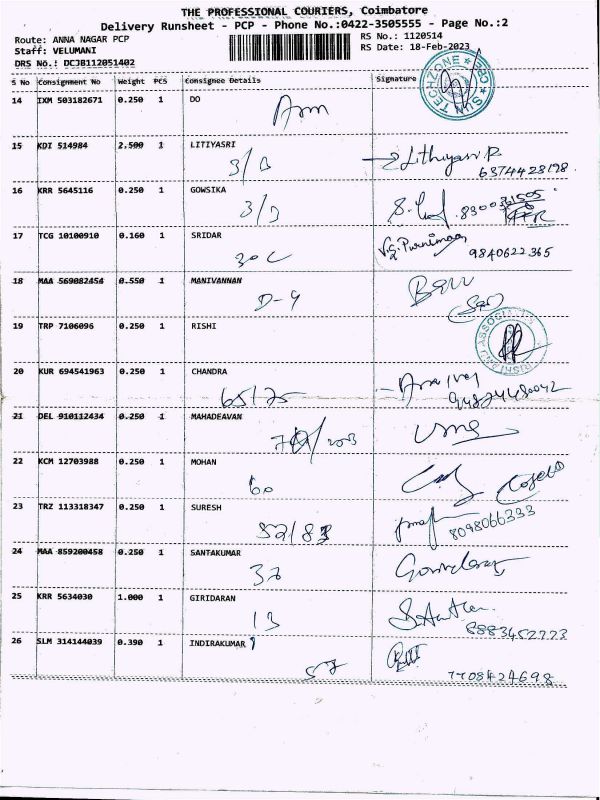 THE PROFESSIONAL COURIERS, Coimbatore
Delivery Runsheet - PCP - Phone No.:0422-3505555 - Page No.:2
Route: ANNA NAGAR PCP
Staff: VELUMANI
DRS No.: DCJB112051402
RS No.: 1120514
RS Date: 18-Feb-2023
S No Consignment No Weight PCS Consignee Details Signature
SUN TECHZONE * CBE *
14 IXM 503182671 0.250 1 DO
15 KDI 514984 2.500 1 LITIYASRI
3/B Lithiyasri.R
6374428198
16 KRR 5645116 0.250 1 GOWSIKA
3/3
17 TCG 10100910 0.160 1 SRIDAR
30C V.S. Purnimaa
9840622365
18 MAA 569082454 0.550 1 MANIVANNAN
D-9
19 TRP 7106096 0.250 1 RISHI
20 KUR 694541963 0.250 1 CHANDRA
65/75
21 DEL 910112434 0.250 1 MAHADEAVAN
Uma
22 KCM 12703988 0.250 1 MOHAN
60
23 TRZ 113318347 0.250 1 SURESH
8098066333
24 MAA 859200458 0.250 1 SANTAKUMAR
37
25 KRR 5634030 1.000 1 GIRIDARAN
13
8883452223
26 SLM 314144039 0.390 1 INDIRAKUMAR
57
7708424698